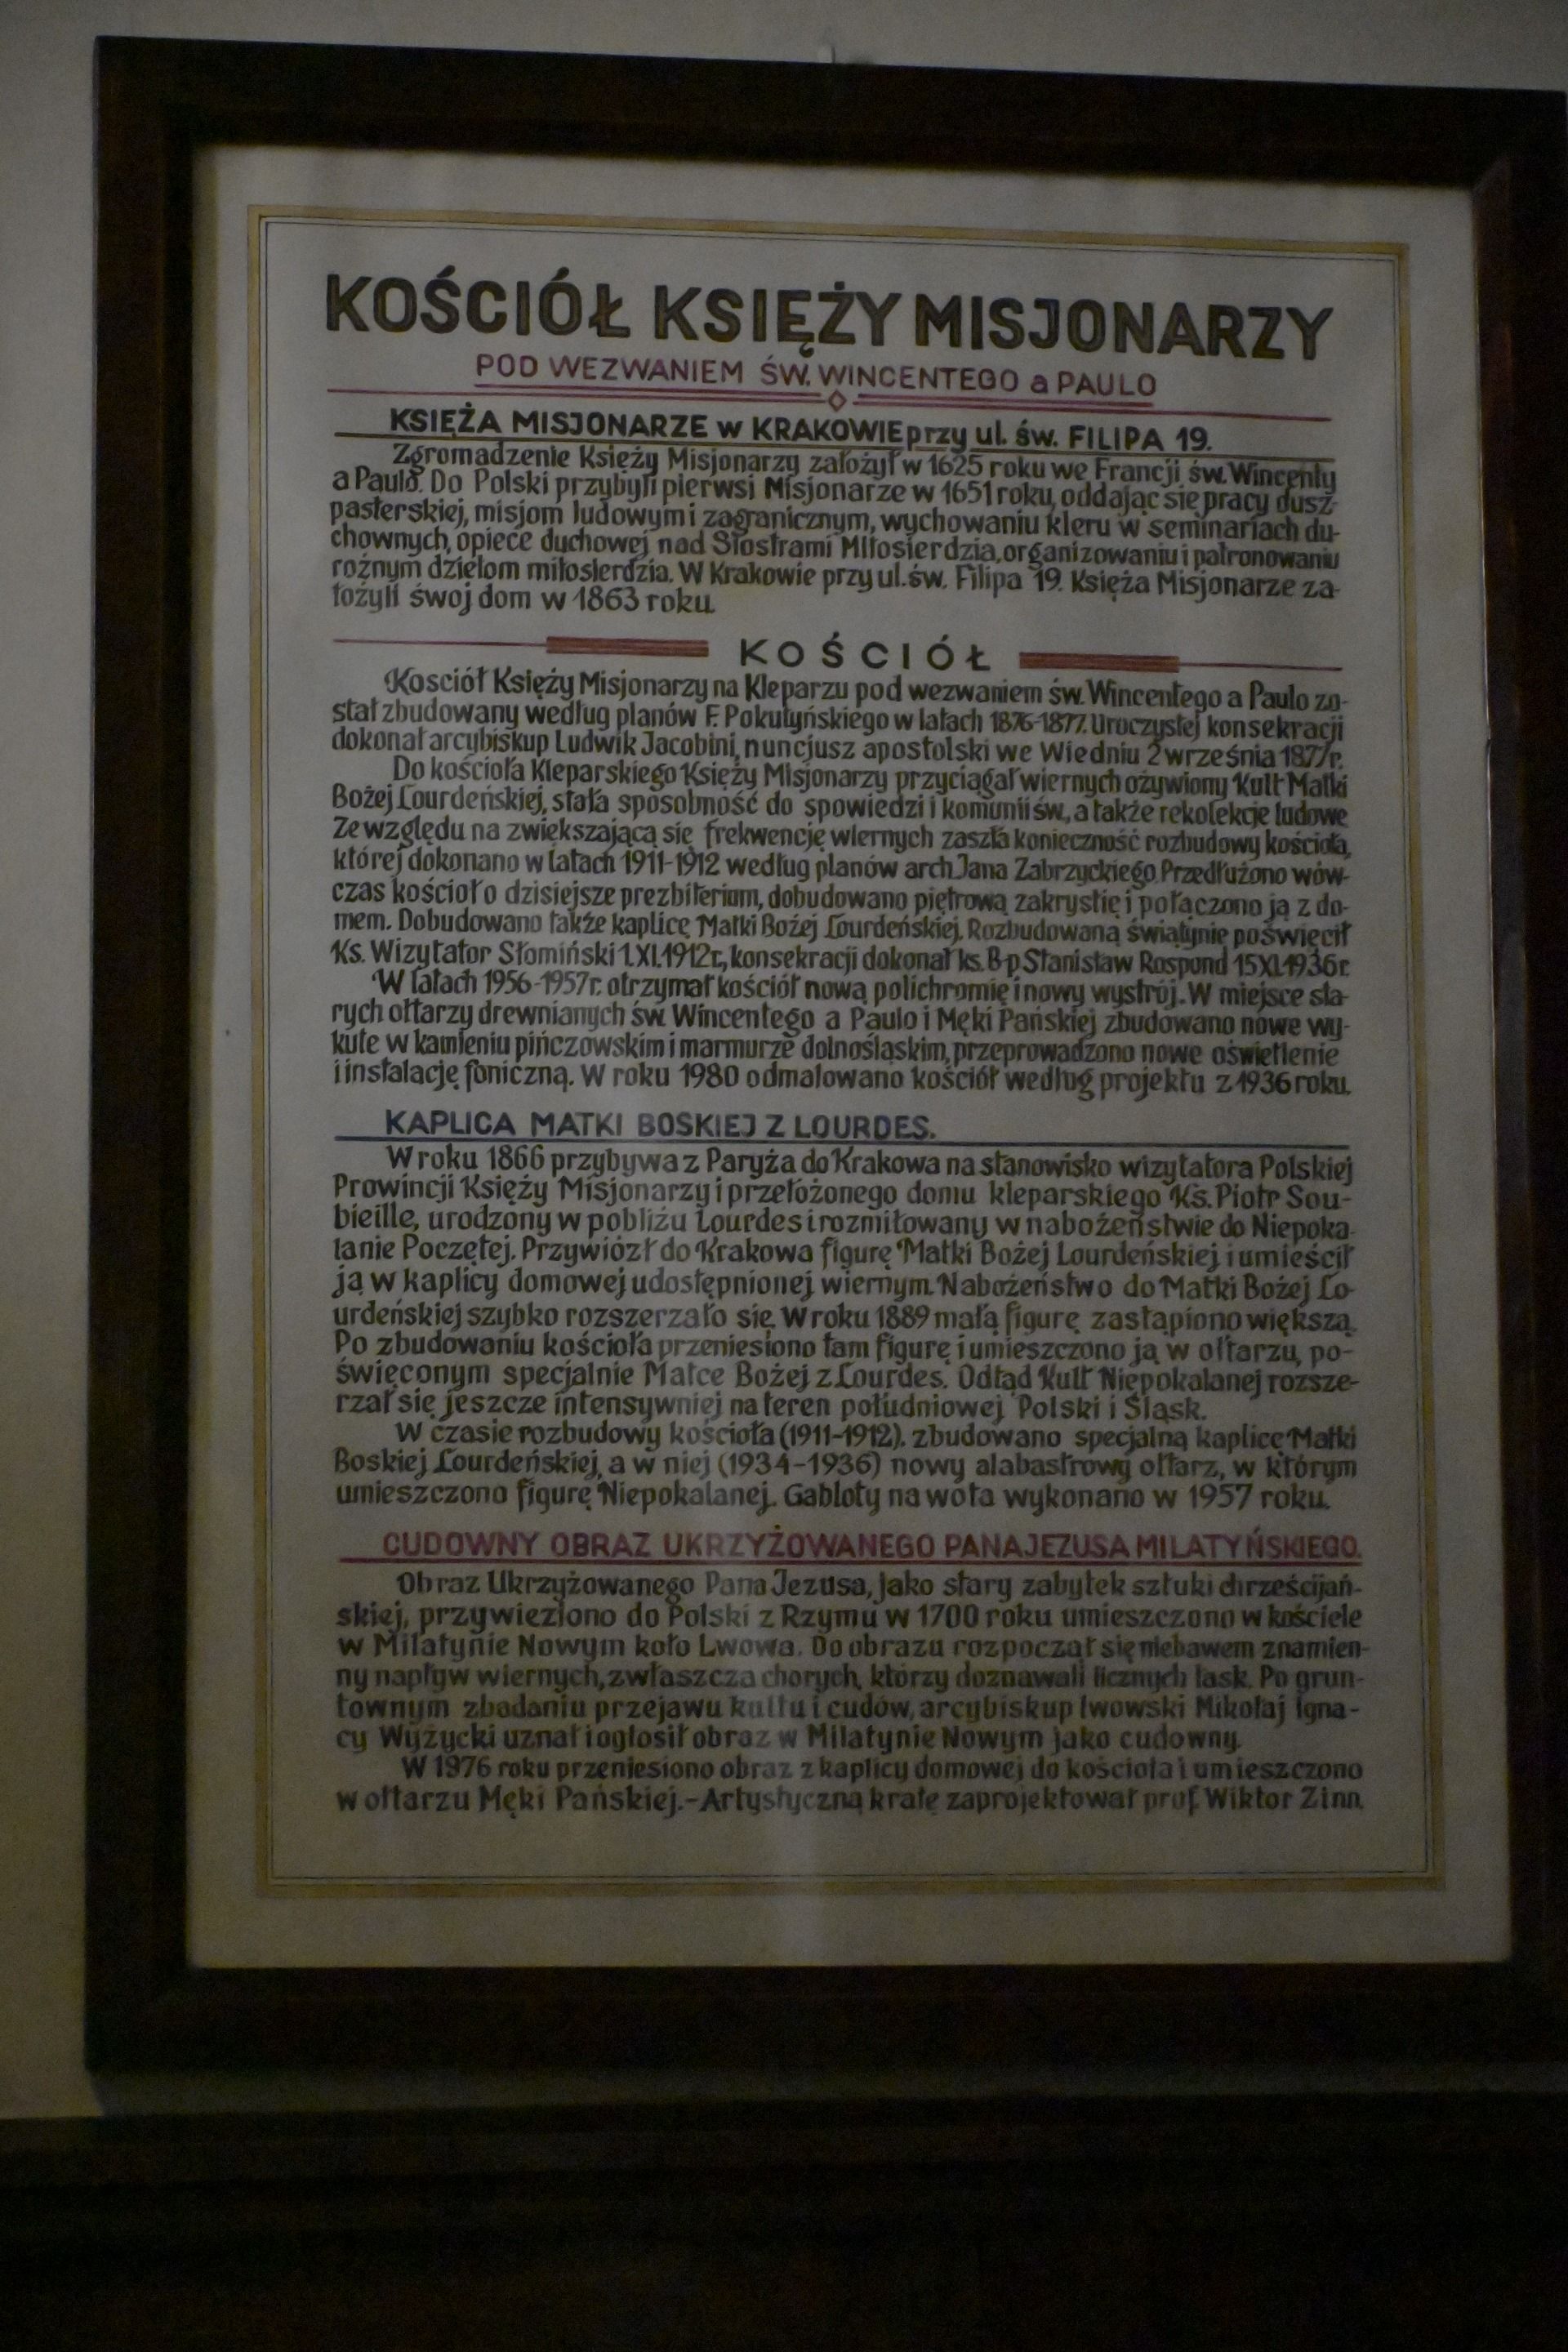 KOŚCIÓŁ KSIĘŻY MISJONARZY
POD WEZWANIEM ŚW. WINCENTEGO a PAULO
KSIĘŻA MISJONARZE w KRAKOWIE przy ul. św. FILIPA 19.
Zgromadzenie Księży Misjonarzy założył w 1625 roku we Francji św. Wincenty
a Paulo. Do Polski przybyli pierwsi Misjonarze w 1651 roku, oddając się pracy dusz-
pasterskiej, misjom ludowym i zagranicznym, wychowaniu kleru w seminariach du-
chownych, opiece duchowej nad Siostrami Miłosierdzia, organizowaniu i patronowaniu
rożnym dziełom miłosierdzia. W Krakowie przy ul. św. Filipa 19. Księża Misjonarze za-
łożyli swoj dom w 1863 roku.
KOŚCIÓŁ
Kosciół Księży Misjonarzy na Kleparzu pod wezwaniem św. Wincentego a Paulo zo-
stał zbudowany według planów F. Pokutyńskiego w latach 1876-1877. Uroczystej konsekracji
dokonał arcybiskup Ludwik Jacobini, nuncjusz apostolski we Wiedniu 2 września 1877r.
Do kościoła Kleparskiego Księży Misjonarzy przyciągał wiernych ożywiony Kult Matki
Bożej Lourdeńskiej, stała sposobność do spowiedzi i komunii św., a także rekolekcje ludowe
Ze względu na zwiększającą się frekwencję wiernych zaszła konieczność rozbudowy kościoła,
której dokonano w latach 1911-1912 według planów arch. Jana Zabrzyckiego. Przedłużono wów-
czas kościoł o dzisiejsze prezbiterium, dobudowano piętrową zakrystię i połączono ją z do-
mem. Dobudowano także kaplicę Matki Bożej Lourdeńskiej. Rozbudowaną świątynię poświęcił
Ks. Wizytator Słomiński 1.XI.1912r., konsekracji dokonał ks. Bp Stanisław Rospond 15XI.1936r.
W latach 1956-1957r. otrzymał kościół nową polichromię i nowy wystrój. W miejsce sta-
rych ołtarzy drewnianych św. Wincentego a Paulo i Męki Pańskiej zbudowano nowe wy-
kute w kamieniu pińczowskim i marmurze dolnośląskim, przeprowadzono nowe oświetlenie
i instalację foniczną. W roku 1980 odmalowano kościół według projektu z 1936 roku.
KAPLICA MATKI BOSKIEJ Z LOURDES.
W roku 1866 przybywa z Paryża do Krakowa na stanowisko wizytatora Polskiej
Prowincji Księży Misjonarzy i przełożonego domu kleparskiego Ks. Piotr Sou-
bieille, urodzony w pobliżu Lourdes i rozmiłowany w nabożeństwie do Niepoka-
lanie Poczętej. Przywiózł do Krakowa figurę Matki Bożej Lourdeńskiej i umieścił
ją w kaplicy domowej udostępnionej wiernym. Nabożeństwo do Matki Bożej Lo-
urdeńskiej szybko rozszerzało się. W roku 1889 małą figurę zastąpiono większą.
Po zbudowaniu kościoła przeniesiono tam figurę i umieszczono ją w ołtarzu, po-
święconym specjalnie Matce Bożej z Lourdes. Odtąd Kult Niepokalanej rozsze-
rzał się jeszcze intensywniej na teren południowej Polski i Śląsk.
W czasie rozbudowy kościoła (1911-1912). zbudowano specjalną kaplicę Matki
Boskiej Lourdeńskiej, a w niej (1934-1936) nowy alabastrowy ołtarz, w którym
umieszczono figurę Niepokalanej. Gabloty na wota wykonano w 1957 roku.
CUDOWNY OBRAZ UKRZYŻOWANEGO PANA JEZUSA MILATYŃSKIEGO.
Obraz Ukrzyżowanego Pana Jezusa, jako stary zabytek sztuki chrześcijań-
skiej, przywieziono do Polski z Rzymu w 1700 roku umieszczono w kościele
w Milatynie Nowym koło Lwowa. Do obrazu rozpoczął się niebawem znamien-
ny napływ wiernych, zwłaszcza chorych, którzy doznawali licznych łask. Po grun-
townym zbadaniu przejawu kultu i cudów, arcybiskup lwowski Mikołaj Igna-
cy Wyżycki uznał i ogłosił obraz w Milatynie Nowym jako cudowny.
W 1976 roku przeniesiono obraz z kaplicy domowej do kościoła i umieszczono
w ołtarzu Męki Pańskiej.-Artystyczną kratę zaprojektował prof. Wiktor Zinn.